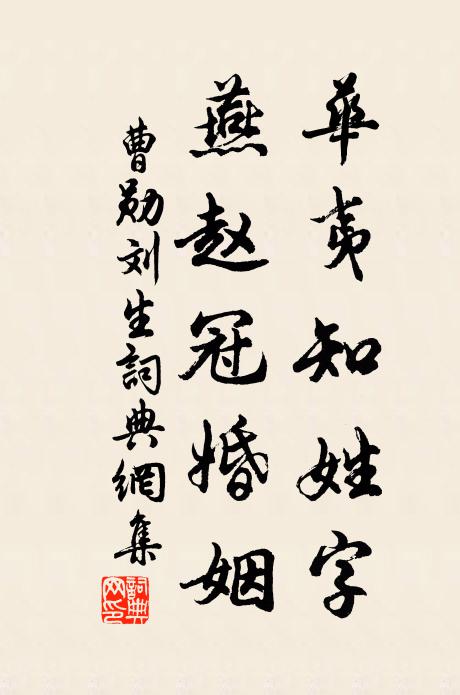 華夷知姓字
燕赵冠婚姻
曹勋刘生詞典網集
詞典网印